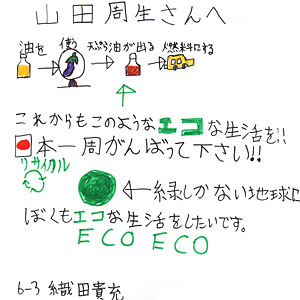 山田周生さんへ
油を 使う 天ぷら油が出る 燃料にする
これからもこのようなエコな生活を!!
本一周がんばって下さい!!
リサイクル
緑しかない地球に
ぼくもエコな生活をしたいです。
ECO ECO
6-3 織田貴充